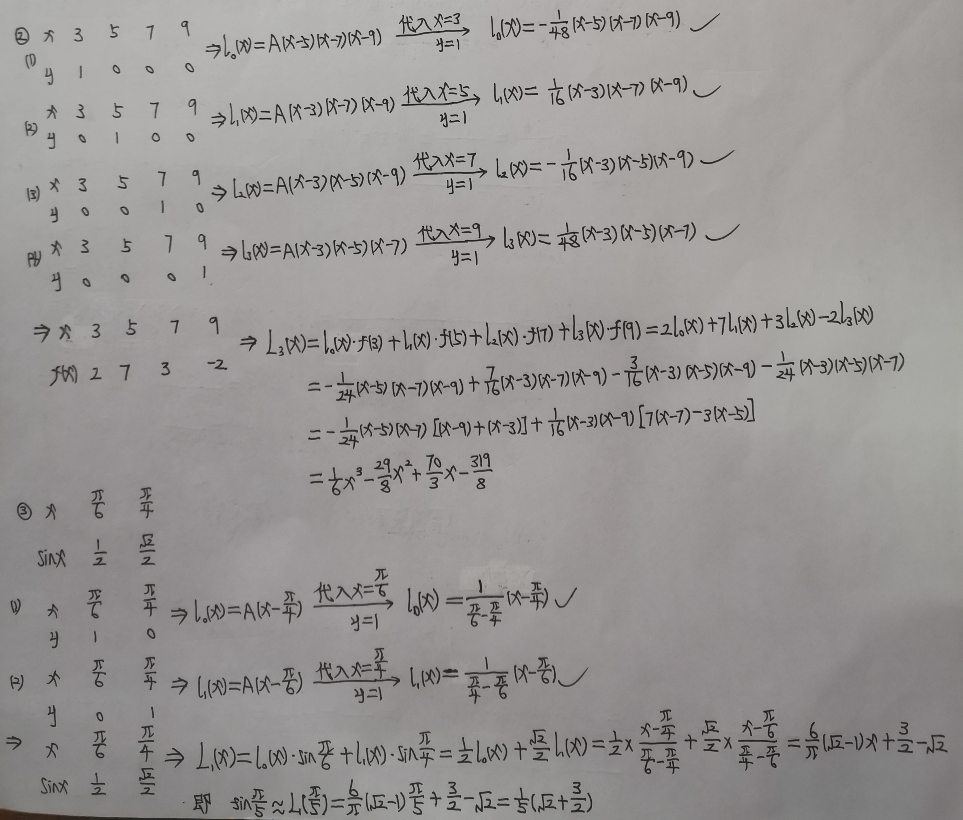 ② x 3 5 7 9
(1) y 1 0 0 0 ⇒ l₀(x)=A(x-5)(x-7)(x-9) 代入x=3 y=1 → l₀(x)=-1/48(x-5)(x-7)(x-9) ✓
(2) x 3 5 7 9
y 0 1 0 0 ⇒ l₁(x)=A(x-3)(x-7)(x-9) 代入x=5 y=1 → l₁(x)=1/16(x-3)(x-7)(x-9) ✓
(3) x 3 5 7 9
y 0 0 1 0 ⇒ l₂(x)=A(x-3)(x-5)(x-9) 代入x=7 y=1 → l₂(x)=-1/16(x-3)(x-5)(x-9) ✓
(4) x 3 5 7 9
y 0 0 0 1 ⇒ l₃(x)=A(x-3)(x-5)(x-7) 代入x=9 y=1 → l₃(x)=1/48(x-3)(x-5)(x-7) ✓
⇒ x 3 5 7 9
f(x) 2 7 3 -2 ⇒ L₃(x)=l₀(x)·f(3)+l₁(x)·f(5)+l₂(x)·f(7)+l₃(x)·f(9)=2l₀(x)+7l₁(x)+3l₂(x)-2l₃(x)
=-1/24(x-5)(x-7)(x-9)+7/16(x-3)(x-7)(x-9)-3/16(x-3)(x-5)(x-9)-1/24(x-3)(x-5)(x-7)
=-1/24(x-5)(x-7)[(x-9)+(x-3)]+1/16(x-3)(x-9)[7(x-7)-3(x-5)]
=1/6x³-29/8x²+70/3x-319/8
③ x π/6 π/4
sinx 1/2 √2/2
(1) x π/6 π/4
y 1 0 ⇒ l₀(x)=A(x-π/4) 代入x=π/6 y=1 → l₀(x)=1/(π/6-π/4)(x-π/4) ✓
(2) x π/6 π/4
y 0 1 ⇒ l₁(x)=A(x-π/6) 代入x=π/4 y=1 → l₁(x)=1/(π/4-π/6)(x-π/6) ✓
⇒ x π/6 π/4
sinx 1/2 √2/2 ⇒ L₁(x)=l₀(x)·sinπ/6+l₁(x)·sinπ/4=1/2l₀(x)+√2/2l₁(x)=1/2×(x-π/4)/(π/6-π/4)+√2/2×(x-π/6)/(π/4-π/6)=6/π(√2-1)x+3/2-√2
即 sinπ/5≈L(π/5)=6/π(√2-1)π/5+3/2-√2=1/5(√2+3/2)